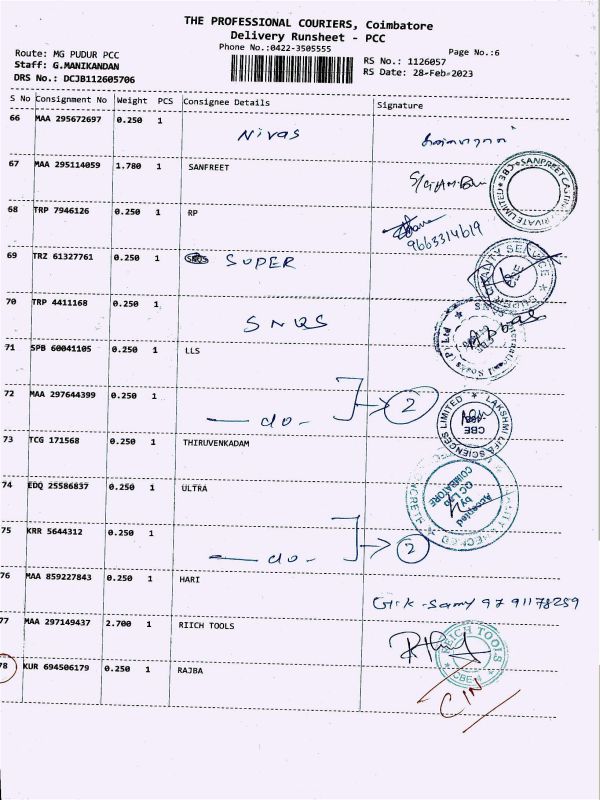 THE PROFESSIONAL COURIERS, Coimbatore
Delivery Runsheet - PCC
Phone No.:0422-3505555
Page No.:6
Route: MG PUDUR PCC
RS No.: 1126057
Staff: G.MANIKANDAN
RS Date: 28-Feb-2023
DRS No.: DCJB112605706
S No Consignment No Weight PCS Consignee Details Signature
66 MAA 295672697 0.250 1 Nivas
67 MAA 295114059 1.780 1 SANFREET
SANPREET CASTINGS PRIVATE LIMITED * CBE *
68 TRP 7946126 0.250 1 RP
9663314619
69 TRZ 61327761 0.250 1 SUPER
SUPER QUALITY SERVICE
CBE
70 TRP 4411168 0.250 1 SNQS
71 SPB 60041105 0.250 1 LLS
72 MAA 297644399 0.250 1 - do - 2
LAKSHMI LIFE SCIENCES LIMITED
CBE
73 TCG 171568 0.250 1 THIRUVENKADAM
74 EDQ 25586837 0.250 1 ULTRA
Accepted
by
COIMBATORE
75 KRR 5644312 0.250 1 - do - 2
76 MAA 859227843 0.250 1 HARI
9791178259
77 MAA 297149437 2.700 1 RIICH TOOLS
RIICH TOOLS
CBE
78 KUR 694506179 0.250 1 RAJBA
CIN